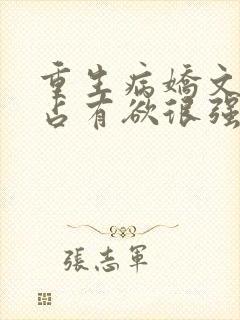 重生病嬌文
占有欲很强
張志軍